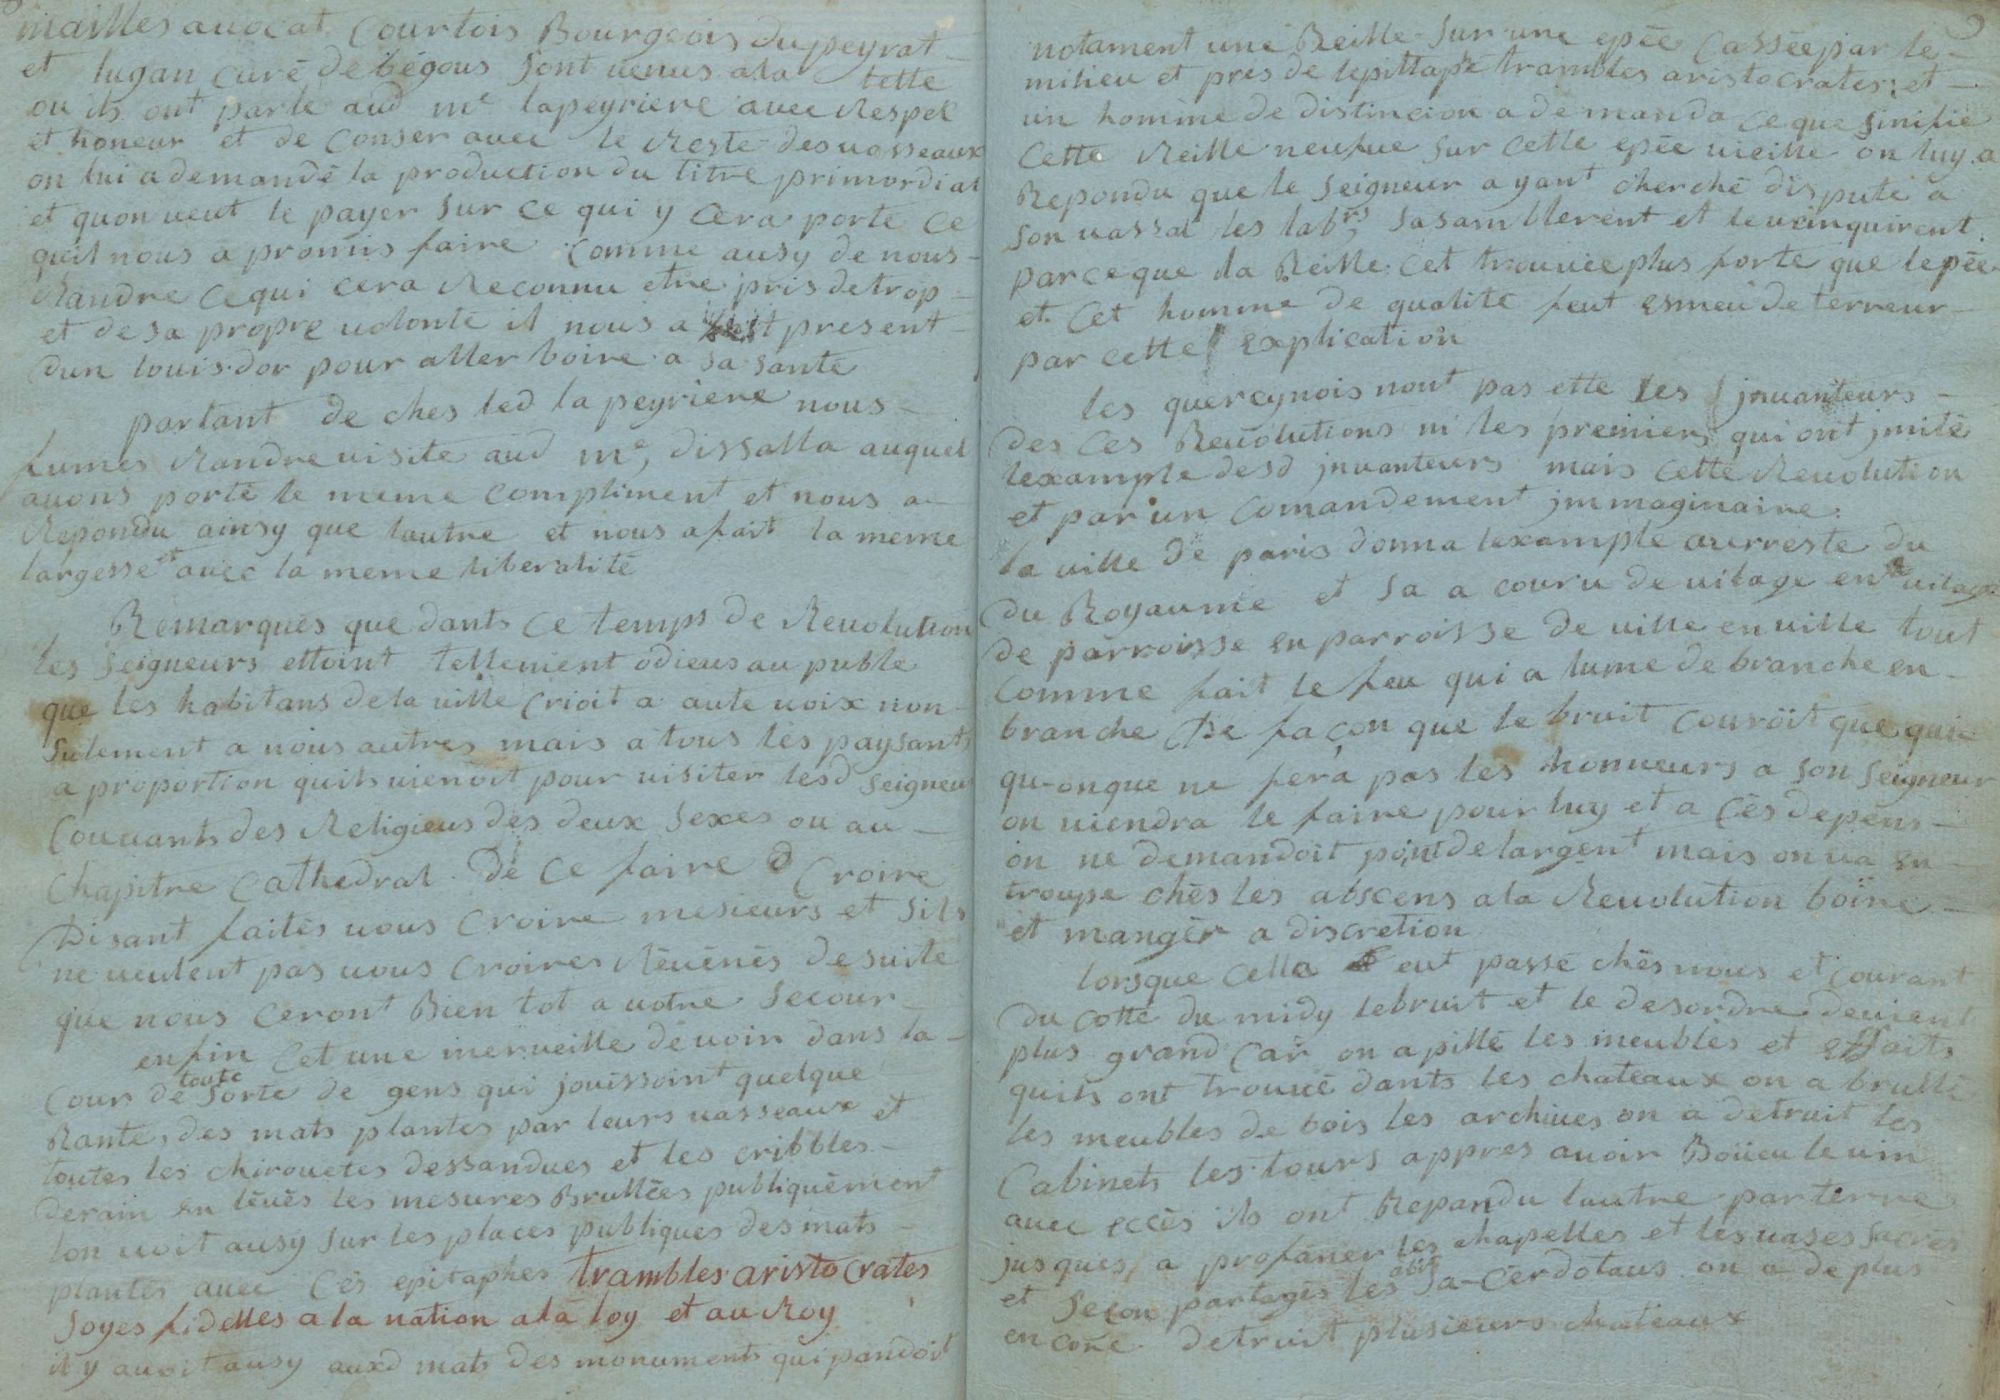 mailles avocat courtois Bourgeois du peyrat
et lugan curé de bégous sont venus a la tette
ou ils ont parlé aud mr lapeyriere avec Respet
et honeur et de conser avec le Reste des vasseaux
on lui a demandé la production du titre primordial
et quon veut le payer sur ce qui y cera porté ce
quil nous a promis faire comme ausy de nous
Randre ce qui cera Reconnu etre pris de trop
et de sa propre volonté il nous a fait present
dun louis dor pour aller boire a sa santé
partant de ches led lapeyriere nous
fumes Randre visite aud mr, dissalla auquel
avons porté le meme compliment et nous a
Repondu ainsy que lautre et nous a fait la meme
largesse et avec la meme liberalité
Remarqués que dants ce temps de Revolution
les seigneurs ettoint tellement odieus au puble
que les habitans de la ville crioit a aute voix non
sulement a nous autres mais a tous les paysants
a proportion quils vienoit pour visiter lesd seigneur
Couvants des Religieus des deux sexes ou au
chapitre cathedral. De ce faire croire
Disant faites vous croire mesieurs et sils
ne veulent pas vous croires Révénés de suite
que nous ceront Bien tot a votre secour
enfin cet une merveille de voir dans la
cour de toute sorte de gens qui jouissoint quelque
Rante, des mats plantes par leurs vasseaux et
toutes les chirouetes dessandues et les cribbles
derain en levés les mesures Brullées publiquement
lon voit ausy sur les places publiques des mats
plantés avec cés epitaphes trambles aristocrates
soyes fidelles a la nation a la loy et au Roy
il y avoit ausy auxd mats des monuments qui pandoit
notament une Reille sur une epée cassée par le
milieu et pres de lepittaphe trambles aristocrates, et
un homme de distincion a demanda ce que sinifie
cette Reille neufue sur cette epée vieille on luy a
Repondu que le seigneur ayant cherché dispute a
son vassal les labrs, sasamblerent et le vainquirent
parce que la Reille cet trouvée plus forte que lepée
et cet homme de qualité feut esmeu de terreur
par cette explication
les quercynois nont pas ette les jnvanteurs
des ces Revolutions ni les premiers qui ont jmité
lexample desd jnvanteurs mais cette Revolution
et par un comandement jmmaginaire.
la ville de paris donna lexample au reste du
du Royaume et sa a couru de vilage en vilage
de parroisse en parroisse de ville en ville tout
comme fait le feu qui a lume de branche en
branche De façon que le bruit couroit que qui
qu-onque ne fera pas les honneurs a son seigneur
on viendra le faire pour luy et a cés depens
on ne demandoit point de largent mais on va en
troupe chés les abscens a la Revolution boire
et manger a discretion
lorsque cella eut passé chés nous et courant
du cotté du midy le bruit et le desordre devient
plus grand car on a pillé les meubles et effaits
quils ont trouvé dants les chateaux on a brullé
les meubles de bois les archives on a detruit les
Cabinets les tours appres avoir Boüeu le vin
avec eccès ils ont Repandu lautre par terre
jusques a profaner les chapelles et les vases sacrés
et secon partagés les abis sa-cerdotaus on a de plus
encore detruit plusieurs chateaux